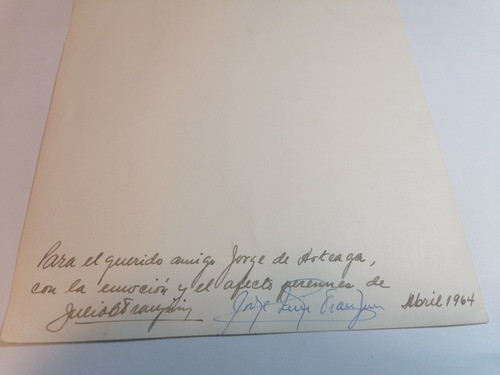 Para el querido amigo Jorge de Arteaga,
con la emoción y el afecto perennes de
Jorge Luis Abril 1964